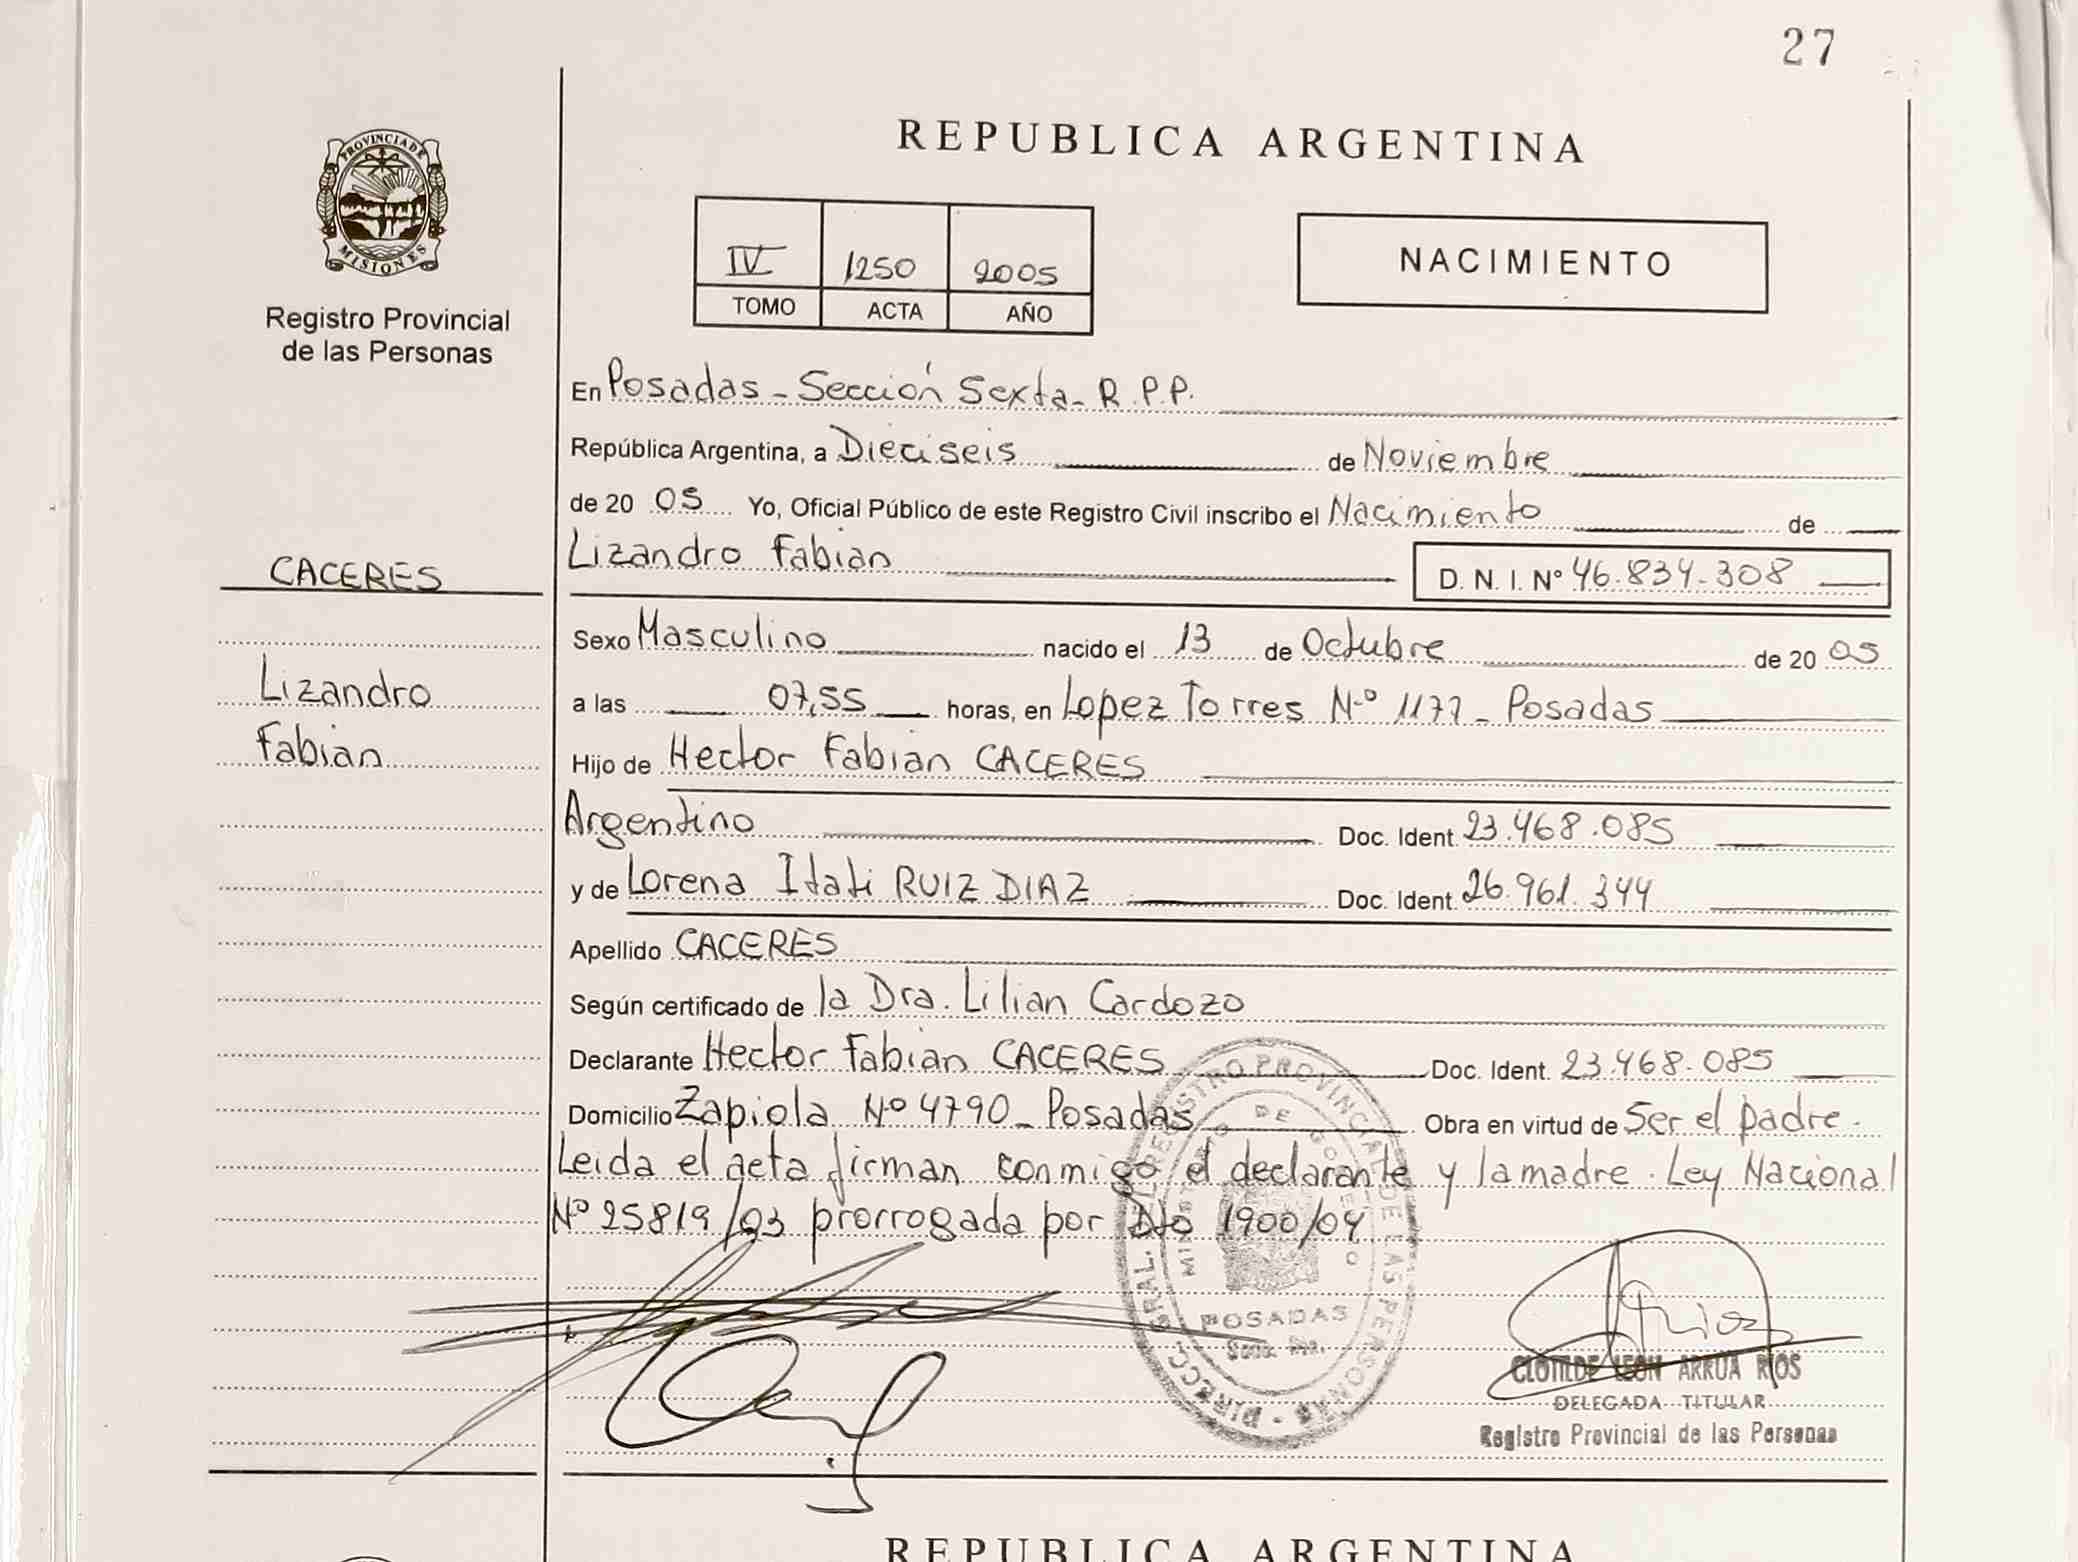 27
REPUBLICA ARGENTINA
PROVINCIA DE
MISIONES
Registro Provincial
de las Personas
IV 1250 2005
TOMO ACTA AÑO
NACIMIENTO
En Posadas - Sección Sexta - R.P.P.
República Argentina, a Dieciseis de Noviembre
de 20 05 Yo, Oficial Público de este Registro Civil inscribo el Nacimiento de
CACERES
Lizandro Fabian
Lizandro Fabian D. N. I. Nº 46.834.308
Sexo Masculino nacido el 13 de Octubre de 20 05
a las 07,55 horas, en Lopez Torres Nº 1177 - Posadas
Hijo de Hector Fabian CACERES
Argentino Doc. Ident. 23.468.085
y de Lorena Itati RUIZ DIAZ Doc. Ident. 26.961.344
Apellido CACERES
Según certificado de la Dra. Lilian Cardozo
Declarante Hector Fabian CACERES Doc. Ident. 23.468.085
Domicilio Zapiola Nº 4790 - Posadas Obra en virtud de Ser el padre.
Leida el acta firman conmigo el declarante y la madre. Ley Nacional
Nº 25819/03 prorrogada por Dto 1900/04
DIRECC. GRAL. DEL REGISTRO PROVINCIAL DE LAS PERSONAS
MINISTERIO DE GOBIERNO
POSADAS
CLOTILDE LEON ARRUA RIOS
DELEGADA TITULAR
Registro Provincial de las Personas
REPUBLICA ARGENTINA